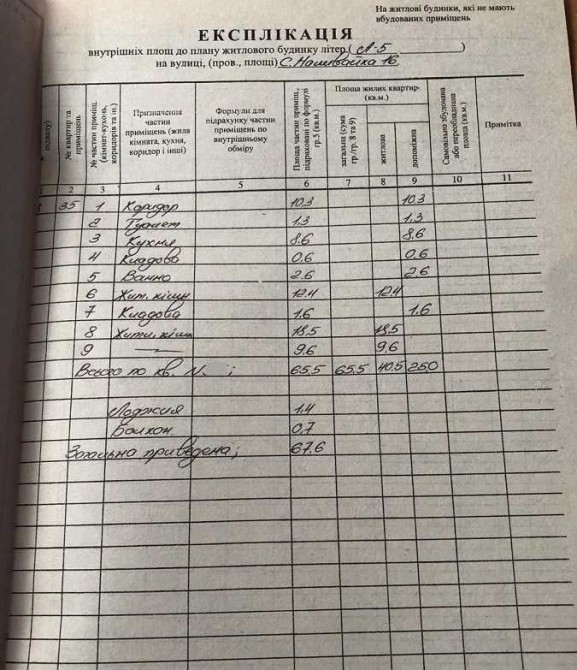 На житлові будинки, які не мають
вбудованих приміщень
ЕКСПЛІКАЦІЯ
внутрішніх площ до плану житлового будинку літер ( А-5 )
на вулиці, (пров., площі) С. Наливайка 16
№ квартир та приміщень
№ частин приміщ. (кімнат-кухонь, коридорів та ін.)
Призначення частин приміщень (жила кімната, кухня, коридор і інші)
Формули для підрахунку частин приміщень по внутрішньому обміру
Площа частин приміщ., підраховані по формулі гр.5 (кв.м.)
Площа жилих квартир- (кв.м.)
загальна (сума гр./гр. 8 та 9)
житлова
допоміжна
Самовільно збудована або переобладнана площа (кв.м.)
Примітка
1 2 3 4 5 6 7 8 9 10 11
35 1 Коридор 10.3 10.3
2 Туалет 1.3 1.3
3 Кухня 8.6 8.6
4 Кладова 0.6 0.6
5 Ванна 2.6 2.6
6 Жит. кімн 12.4 12.4
7 Кладова 1.6 1.6
8 Житл. кімн 18.5 18.5
9 —"— 9.6 9.6
Всього по кв. N. ; 65.5 65.5 40.5 25.0
Лоджия 1.4
Балкон 0.7
Загальна приведена; 67.6